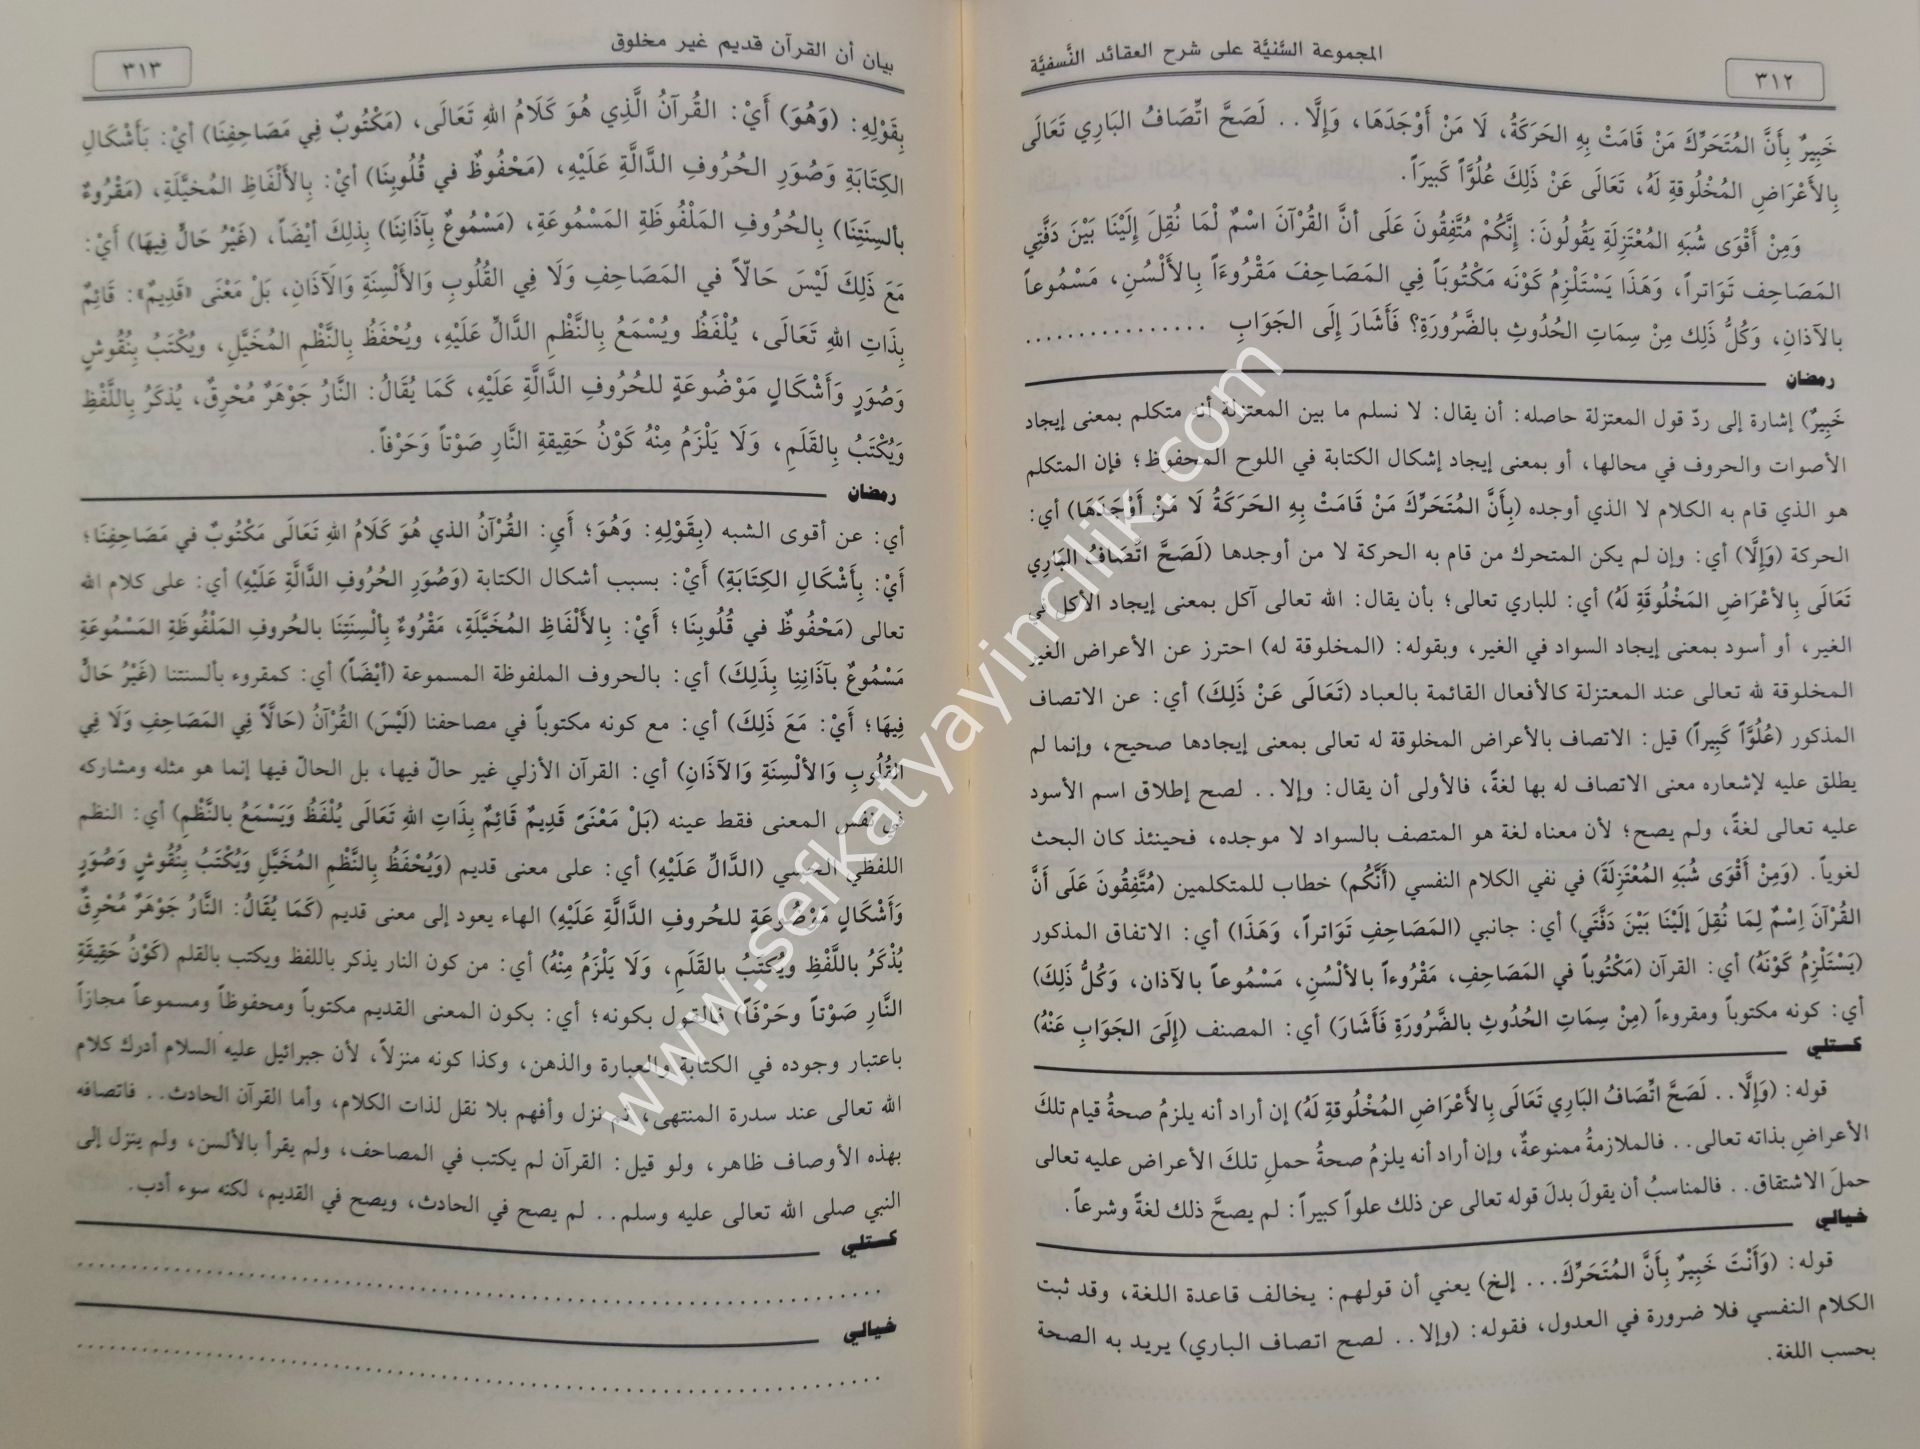 المجموعة السَّنيَّة على شرح العقائد النَّسفيَّة
٣١٢
خَبِيرٌ بِأَنَّ المُتَحَرِّكَ مَنْ قَامَتْ بِهِ الحَرَكَةُ، لَا مَنْ أَوْجَدَهَا، وَإِلَّا.. لَصَحَّ اتِّصَافُ البَارِي تَعَالَى
بِالأَعْرَاضِ المُخْلُوقةِ لَهُ، تَعَالَى عَنْ ذَلِكَ عُلُوَّاً كَبِيرَاً.
وَمِنْ أَقْوَى شُبَهِ المُعْتَزِلَةِ يَقُولُونَ: إِنَّكُمْ مُتَّفِقُونَ عَلَى أنَّ القُرْآنَ اسْمٌ لْمَا نُقِلَ إِلَيْنَا بَيْنَ دَفَّتِي
المَصَاحِف تَوَاتراً، وَهَذَا يَسْتَلْزِمُ كَوْنَه مَكْتُوبَاً فِي المَصَاحِفَ مَقْرُوءَاً بِالأَلْسُنِ، مَسْمُوعاً
بالآذانِ، وَكُلُّ ذَلِك مِنْ سِمَاتِ الحُدُوثِ بالضَّرُورَةِ؟ فَأَشَارَ إِلَى الجَوَابِ ...............
رمضان
خَبِيرٌ) إشارة إلى ردّ قول المعتزلة حاصله: أن يقال: لا نسلم ما بين المعتزلة أنه متكلم بمعنى إيجاد
الأصوات والحروف في محالها، أو بمعنى إيجاد إشكال الكتابة في اللوح المحفوظ؛ فإن المتكلم
هو الذي قام به الكلام لا الذي أوجده (بِأَنَّ المُتَحَرِّكَ مَنْ قَامَتْ بِهِ الحَرَكَةُ لَا مَنْ أَوْجَدَهَا) أي:
الحركة (وَإِلَّا) أي: وإن لم يكن المتحرك من قام به الحركة لا من أوجدها (لَصَحَّ اتِّصَافُ البَارِي
تَعَالَى بِالأَعْرَاضِ المَخْلُوقَةِ لَهُ) أي: للباري تعالى؛ بأن يقال: الله تعالى آكل بمعنى إيجاد الأكل في
الغير، أو أسود بمعنى إيجاد السواد في الغير، وبقوله: (المخلوقة له) احترز عن الأعراض الغير
المخلوقة لله تعالى عند المعتزلة كالأفعال القائمة بالعباد (تَعَالَى عَنْ ذَلِكَ) أي: عن الاتصاف
المذكور (عُلُوَّاً كَبِيراً) قيل: الاتصاف بالأعراض المخلوقة له تعالى بمعنى إيجادها صحيح، وإنما لم
يطلق عليه لإشعاره معنى الاتصاف له بها لغةً، فالأولى أن يقال: وإلا.. لصح إطلاق اسم الأسود
عليه تعالى لغةً، ولم يصح؛ لأن معناه لغة هو المتصف بالسواد لا موجده، فحينئذ كان البحث
لغوياً. (وَمِنْ أَقْوَى شُبَهِ المُعْتَزِلَةَ) في نفي الكلام النفسي (أَنَّكُم) خطاب للمتكلمين (مُتَّفِقُونَ عَلَى أَنَّ
القُرْآنَ اِسْمٌ لِمَا نُقِلَ إِلَيْنَا بَيْنَ دَفَّتَي) أي: جانبي (المَصَاحِفِ تَوَاتراً، وَهَذَا) أي: الاتفاق المذكور
(يَسْتَلْزِمُ كَوْنَهُ) أي: القرآن (مَكْتُوباً في المَصَاحِفِ، مَقْرُوءاً بالألْسُنِ، مَسْمُوعاً بالآذان، وَكُلُّ ذَلِكَ)
أي: كونه مكتوباً ومقروءاً (مِنْ سِمَاتِ الحُدُوثِ بالضَّرُورَةِ فَأَشَارَ) أي: المصنف (إِلَىَ الجَوَابِ عَنْهُ)
كستلي
قوله: (وَإِلَّا.. لَصَحَّ اتِّصَافُ البَارِي تَعَالَى بِالأَعْرَاضِ المُخْلُوقةِ لَهُ) إن أراد أنه يلزمُ صحةُ قيام تلكَ
الأعراضِ بذاته تعالى.. فالملازمةُ ممنوعةٌ، وإن أراد أنه يلزمُ صحةُ حملِ تلكَ الأعراض عليه تعالى
حملَ الاشتقاق.. فالمناسبُ أن يقولَ بدلَ قوله تعالى عن ذلك علواً كبيراً: لم يصحَّ ذلك لغةً وشرعاً.
خيالي
قوله: (وَأَنْتَ خَبِيرٌ بِأَنَّ المُتَحَرِّكَ... إلخ) يعني أن قولهم: يخالف قاعدة اللغة، وقد ثبت
الكلام النفسي فلا ضرورة في العدول، فقوله: (وإلا.. لصح اتصاف الباري) يريد به الصحة
بحسب اللغة.
بيان أن القرآن قديم غير مخلوق
٣١٣
بِقَوْلِهِ: (وَهُوَ) أَيْ: القُرآنُ الَّذِي هُوَ كَلَامُ اللهِ تَعَالَى، (مَكْتُوبٌ فِي مَصَاحِفِنَا) أيْ: بَأَشْكَالِ
الكِتَابَةِ وَصُوَرِ الحُرُوفِ الدَّالَّةِ عَلَيْهِ، (مَحْفُوظٌ في قُلُوبِنَا) أيْ: بِالأَلْفَاظِ المُخيَّلَةِ، (مَقْرُوءٌ
بألسِنَتِنَا) بِالحُرُوفِ المَلْفُوظَةِ المَسْمُوعَةِ، (مَسْمُوعٌ بِآذَانِنَا) بِذلِكَ أيْضَاً، (غَيْرُ حَالٍّ فِيهَا) أَيْ:
مَعَ ذَلِكَ لَيْسَ حَالّاً في المَصَاحِفِ وَلَا فِي القُلُوبِ وَالأَلْسِنَةِ وَالآذَانِ، بَلْ مَعْنَى «قَدِيمٌ»: قَائِمٌ
بِذَاتِ اللهِ تَعَالَى، يُلْفَظُ ويُسْمَعُ بِالنَّظْمِ الدَّالِّ عَلَيْهِ، ويُحْفَظُ بِالنَّظْمِ المُخيَّلِ، ويُكْتَبُ بِنُقُوشٍ
وَصُوَرٍ وَأَشْكَالٍ مَوْضُوعَةٍ للحُرُوفِ الدَّالَّةِ عَلَيْهِ، كَمَا يُقَالُ: النَّارُ جَوْهَرٌ مُحْرِقٌ، يُذكَرُ بِاللَّفْظِ
وَيُكْتَبُ بِالقَلَمِ، وَلَا يَلْزَمُ مِنْهُ كَوْنُ حَقِيقةِ النَّارِ صَوْتاً وَحَرْفاً.
رمضان
أي: عن أقوى الشبه (بِقَوْلِهِ: وَهُوَ؛ أَيِ: القُرْآنُ الذي هُوَ كَلَامُ اللهِ تَعَالَى مَكْتُوبٌ في مَصَاحِفِنَا؛
أَيْ: بِأَشْكَالِ الكِتَابَةِ) أَيْ: بسبب أشكال الكتابة (وَصُوَرِ الحُرُوفِ الدَّالَّةِ عَلَيْهِ) أي: على كلام الله
تعالى (مَحْفُوظٌ في قُلُوبِنَا؛ أَيْ: بِالأَلْفَاظِ المُخَيَّلَةِ، مَقْرُوءٌ بِأَلْسِنَتِنَا بالحُروفِ المَلْفُوظَةِ المَسْمُوعَةِ
مَسْمُوعٌ بِآذَانِنا بِذَلِكَ) أي: بالحروف الملفوظة المسموعة (أيْضَاً) أي: كمقروء بألسنتنا (غَيْرُ حَالٍّ
فِيهَا؛ أَيْ: مَعَ ذَلِكَ) أي: مع كونه مكتوباً في مصاحفنا (لَيْسَ) القُرْآنُ (حَالَّاً فِي المَصَاحِفِ وَلَا فِي
القُلُوبِ وَالألْسِنَةِ وَالآذَانِ) أي: القرآن الأزلي غير حالّ فيها، بل الحالّ فيها إنما هو مثله ومشاركه
في نفس المعنى فقط عينه (بَلْ مَعْنَىً قَدِيمٌ قَائِمٌ بِذَاتِ اللهِ تَعَالَى يُلْفَظُ وَيَسْمَعُ بالنَّظْمِ) أي: النظم
اللفظي الحسي (الدَّالِّ عَلَيْهِ) أي: على معنى قديم (وَيُحْفَظُ بِالنَّظْمِ المُخَيَّلِ وَيُكْتَبُ بِنُقُوشٍ وَصُوَرٍ
وَأَشْكَالٍ مَوْضُوعَةٍ للحُروفِ الدَّالَّةِ عَلَيْهِ) الهاء يعود إلى معنى قديم (كَمَا يُقَالُ: النَّارُ جَوْهَرٌ مُحْرِقٌ
يُذْكَرُ بِاللَّفْظِ ويُكتَبُ بالقَلَمِ، وَلَا يَلْزَمُ مِنْهُ) أي: من كون النار يذكر باللفظ ويكتب بالقلم (كَوْنُ حَقِيقَةِ
النَّارِ صَوْتاً وحَرْفَاً) فالقول بكونه؛ أي: بكون المعنى القديم مكتوباً ومحفوظاً ومسموعاً مجازاً
باعتبار وجوده في الكتابة والعبارة والذهن، وكذا كونه منزلاً، لأن جبرائيل عليه السلام أدرك كلام
الله تعالى عند سدرة المنتهى، ثم نزل وأفهم بلا نقل لذات الكلام، وأما القرآن الحادث.. فاتصافه
بهذه الأوصاف ظاهر، ولو قيل: القرآن لم يكتب في المصاحف، ولم يقرأ بالألسن، ولم ينزل إلى
النبي صلى الله تعالى عليه وسلم.. لم يصح في الحادث، ويصح في القديم، لكنه سوء أدب.
كستلي
خيالي
www.sefkatyayincilik.com